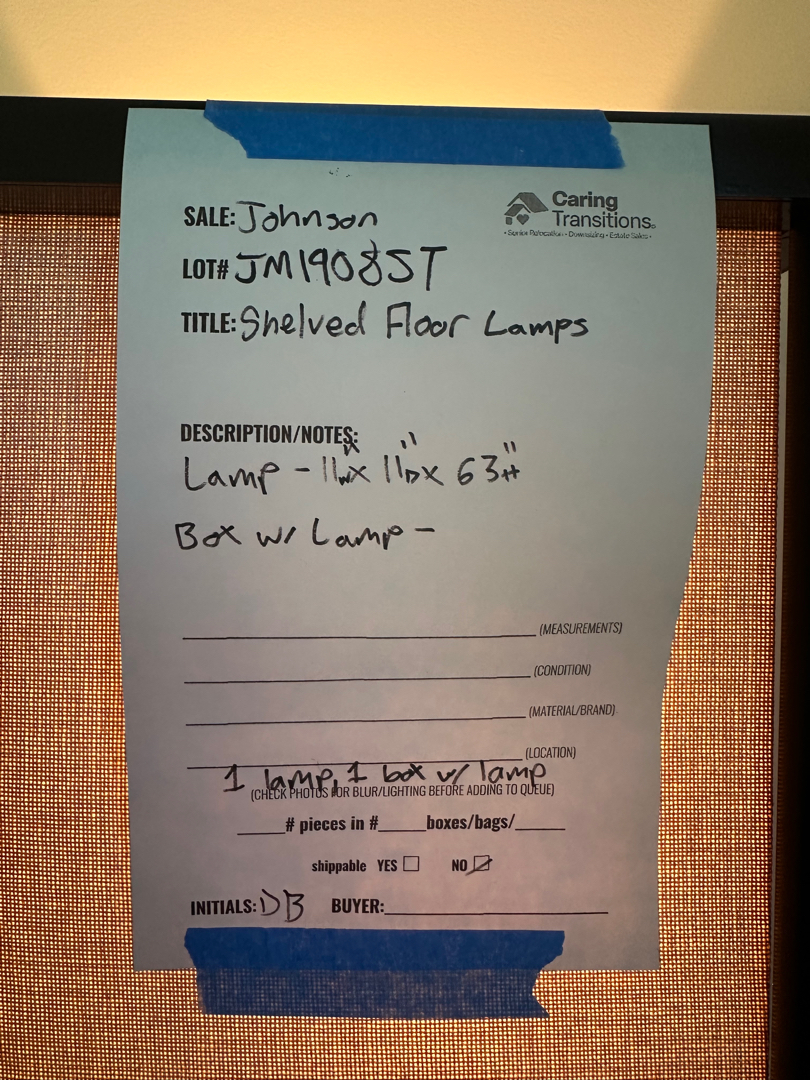 SALE: Johnson
Caring
Transitions
• Senior Relocation • Downsizing • Estate Sales •
LOT# JM1908ST
TITLE: Shelved Floor Lamps
DESCRIPTION/NOTES:
Lamp - 11"W x 11"D x 63"H
Box w/ Lamp -
(MEASUREMENTS)
(CONDITION)
(MATERIAL/BRAND)
(LOCATION)
1 lamp, 1 box w/ lamp
(CHECK PHOTOS FOR BLUR/LIGHTING BEFORE ADDING TO QUEUE)
_____# pieces in #_____boxes/bags/_____
shippable YES ☐ NO ☑
INITIALS: DB BUYER:____________________